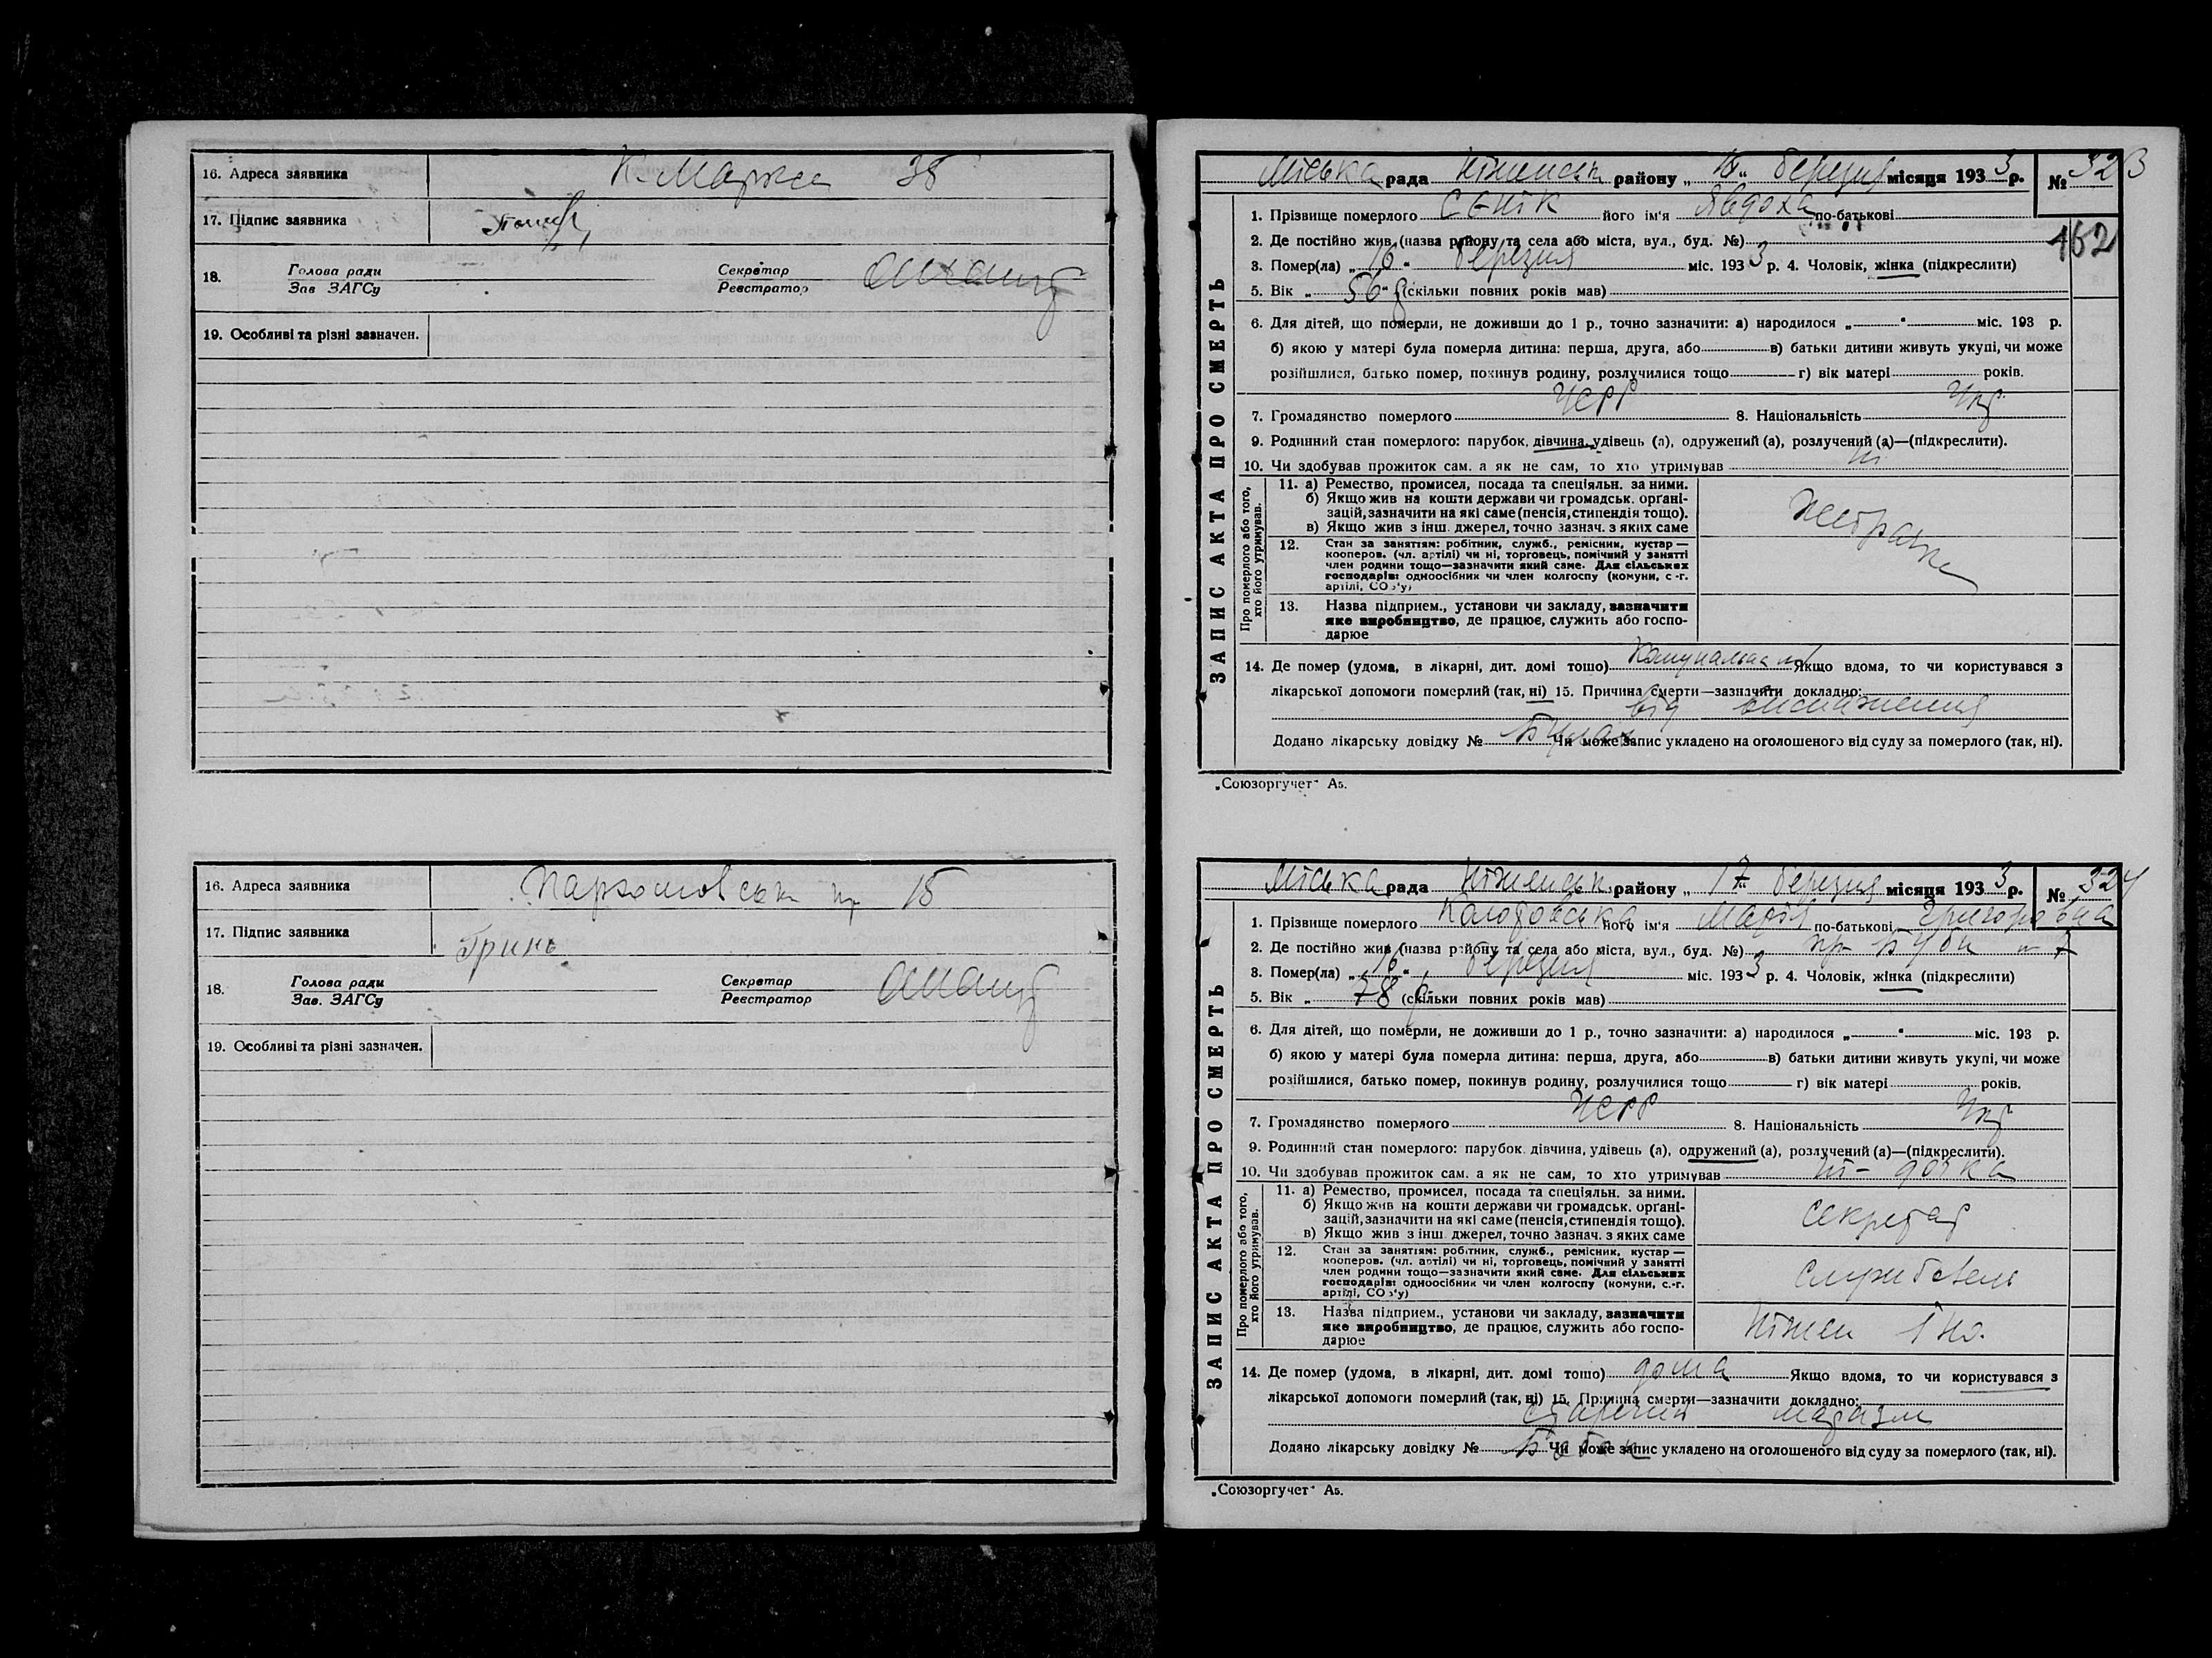 16. Адреса заявника К. Маркса 38
17. Підпис заявника
18. Голова ради Секретар
Зав ЗАГСу Реєстратор
19. Особливі та різні зазначен.
16. Адреса заявника 15
17. Підпис заявника Гринь
18. Голова ради Секретар
Зав. ЗАГСу Реєстратор
19. Особливі та різні зазначен.
ЗАПИС АКТА ПРО СМЕРТЬ
Міська рада Ніженськ району „ “ березня місяця 193 3 р. № 323
1. Прізвище померлого Сєнік його ім'я Явдоха по-батькові
162
2. Де постійно жив (назва району та села або міста, вул., буд. №)
3. Помер(ла) „ 16 “ березня міс. 193 3 р. 4. Чоловік, жінка (підкреслити)
5. Вік „ 56 “ (скільки повних років мав)
6. Для дітей, що померли, не доживши до 1 р., точно зазначити: а) народилося „ “ міс. 193 р.
б) якою у матері була померла дитина: перша, друга, або в) батьки дитини живуть укупі, чи може
розійшлися, батько помер, покинув родину, розлучилися тощо г) вік матері років.
7. Громадянство померлого УСРР 8. Національність Укр.
9. Родинний стан померлого: парубок, дівчина, удівець (а), одружений (а), розлучений (а)—(підкреслити).
10. Чи здобував прожиток сам, а як не сам, то хто утримував ні
Про померлого або того, хто його утримував.
11. а) Ремество, промисел, посада та спеціяльн. за ними.
б) Якщо жив на кошти держави чи громадськ. орґані-
зацій, зазначити на які саме (пенсія, стипендія тощо).
в) Якщо жив з інш. джерел, точно зазнач. з яких саме
12. Стан за заняттям: робітник, служб., ремісник, кустар —
кооперов. (чл. артілі) чи ні, торговець, помічний у занятті
член родини тощо—зазначити який саме. Для сільських
господарів: одноосібник чи член колгоспу (комуни, с.-г.
артілі, СОЗ'у)
13. Назва підприєм., установи чи закладу, зазначити
яке виробництво, де працює, служить або госпо-
дарює
14. Де помер (удома, в лікарні, дит. домі тощо) Якщо вдома, то чи користувався з
лікарської допомоги померлий (так, ні) 15. Причина смерти—зазначити докладно:
від виснаження
Додано лікарську довідку № Чи може запис укладено на оголошеного від суду за померлого (так, ні).
„Союзоргучет“ А5.
ЗАПИС АКТА ПРО СМЕРТЬ
Міська рада Ніженськ. району „ 17 “ березня місяця 193 3 р. № 324
1. Прізвище померлого його ім'я Марія по-батькові Григоровна
2. Де постійно жив (назва району та села або міста, вул., буд. №) 7
3. Помер(ла) „ 16 “ березня міс. 193 3 р. 4. Чоловік, жінка (підкреслити)
5. Вік „ 78 (скільки повних років мав)
6. Для дітей, що померли, не доживши до 1 р., точно зазначити: а) народилося „ “ міс. 193 р.
б) якою у матері була померла дитина: перша, друга, або в) батьки дитини живуть укупі, чи може
розійшлися, батько помер, покинув родину, розлучилися тощо г) вік матері років.
7. Громадянство померлого УСРР 8. Національність Укр
9. Родинний стан померлого: парубок, дівчина, удівець (а), одружений (а), розлучений (а)—(підкреслити).
10. Чи здобував прожиток сам, а як не сам, то хто утримував ні - дочка
Про померлого або того, хто його утримував.
11. а) Ремество, промисел, посада та спеціяльн. за ними.
б) Якщо жив на кошти держави чи громадськ. орґані-
зацій, зазначити на які саме (пенсія, стипендія тощо).
в) Якщо жив з інш. джерел, точно зазнач. з яких саме
секретар
12. Стан за заняттям: робітник, служб., ремісник, кустар —
кооперов. (чл. артілі) чи ні, торговець, помічний у занятті
член родини тощо—зазначити який саме. Для сільських
господарів: одноосібник чи член колгоспу (комуни, с.-г.
артілі, СОЗ'у)
службовець
13. Назва підприєм., установи чи закладу, зазначити
яке виробництво, де працює, служить або госпо-
дарює
Ніжен ІНО.
14. Де помер (удома, в лікарні, дит. домі тощо) дома Якщо вдома, то чи користувався з
лікарської допомоги померлий (так, ні) 15. Причина смерти—зазначити докладно:
старечий маразм
Додано лікарську довідку № Чи може запис укладено на оголошеного від суду за померлого (так, ні).
„Союзоргучет“ А5.